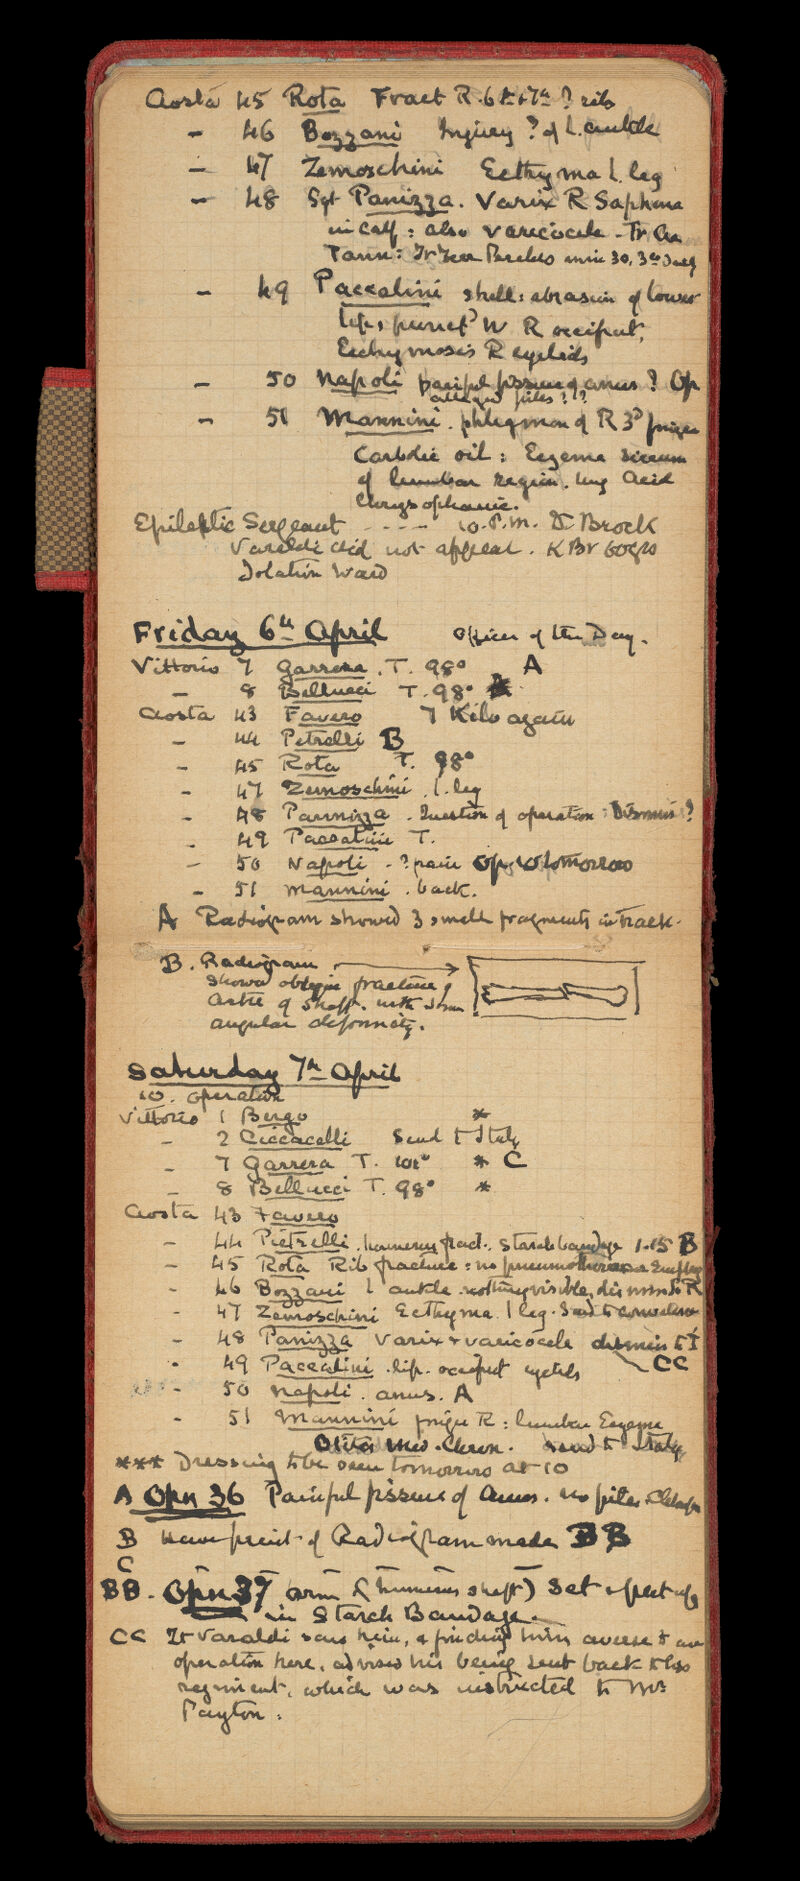 Aosta 45 Rota Fract R. 6th & 7th ? ribs
- 46 Bozzani Injury ? of L. ankle
- 47 Zemoschini Ecthyma L. leg
- 48 Sgt Panizza. Varix R Saphena
in calf: also varicocele -
30, 3rd
- 49 Paccalini shell: abrasion of lower
lip, punct^d W R occiput,
Ecchymosis R eyelids
- 50 Napoli painful fissure of anus ? Op
piles ??
- 51 Mannini. phlegmon of R 3^d finger
Carbolic oil: Eczema siccum
of lumbar region. ung Acid
Chrysophanic.
Epileptic Sergeant - - - - 10. P.M. Dr Brock
Varaldi did not appear. K Br 60 grs
Isolation Ward
Friday 6th April Officer of the Day.
Vittorio 7 Garrera. T. 98° A
- 8 Bellucci T. 98°
Aosta 43 Favero 7 Kilo again
- 44 Petrelli B
- 45 Rota T. 98°
- 47 Zemoschini. L. leg
- 48 Pannizza. Question of operation: Dismiss?
- 49 Paccalini T.
- 50 Napoli - ? pain Op. 10 tomorrow
- 51 Mannini. back.
A Radiogram showed 3 small fragments in track.
B. Radiogram
showed oblique fracture of
of shaft. with some
angular deformity.
Saturday 7th April
10. operation
Vittorio 1 Bergo *
- 2 Ciccacelli Send to Italy
- 7 Garrera T. 101° * C
- 8 Bellucci T. 98° *
Aosta 43 Favero
- 44 Pietrelli. humerus fract. Starch bandage 1.15 B
- 45 Rota Rib fracture: no pneumothorax or
- 46 Bozzani L ankle. nothing visible, dismiss to R
- 47 Zemoschini Ecthyma. L leg. Send to
- 48 Panizza Varix + varicocele dismiss to I
- 49 Paccalini. lip. occiput eyelids CC
- 50 Napoli. anus. A
- 51 Mannini finger R: lumbar Eczema
Otitis Med. Chron. send to Italy
*** Dressing to be seen tomorrow at 10
A Opn 36 Painful fissure of Anus. no piles.
B have print of Radiogram made BB
C
BB. Opn 37 arm L (humerus shaft) Set & put up
in Starch Bandage.
CC Lt Varaldi saw him, & finding him averse to an
operation here, advised his being sent back to his
regiment, which was instructed to Mr
Payton.